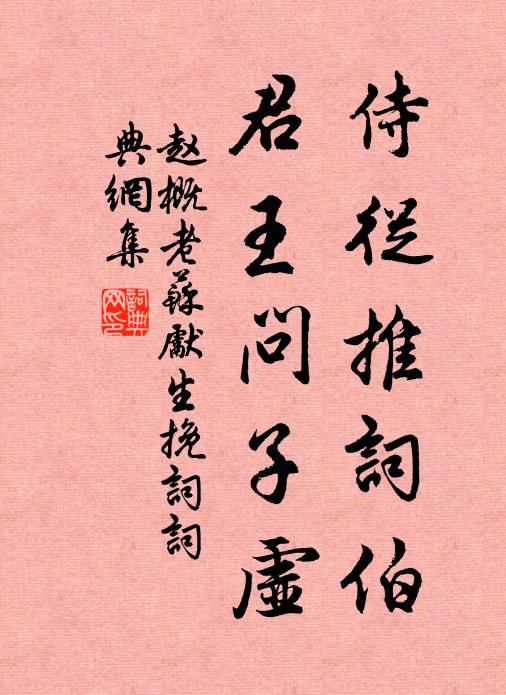 侍從推詞伯
君王問子虛
赵概老蘇獻生挽詞詞
典網集
詞典网印